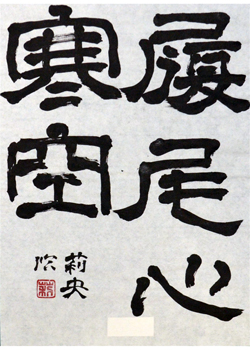 履尾心
寒空
莉央